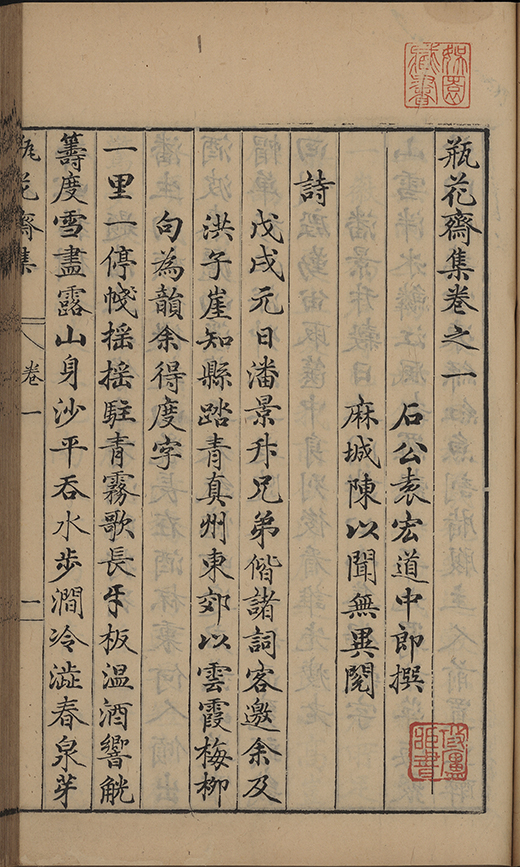 瓶花齋集卷之一
石公袁宏道中郎撰
麻城陳以聞無異閱
詩
戊戌元日潘景升兄弟偕諸詞客邀余及
洪子崖知縣踏青真州東郊以雲霞梅柳
句為韻余得度字
一里一停搖搖駐青霧歌長牙板温酒響觥
籌度雪盡露山身沙平吞水步澗冷澁春泉芽
瓶花齋集
卷一
一